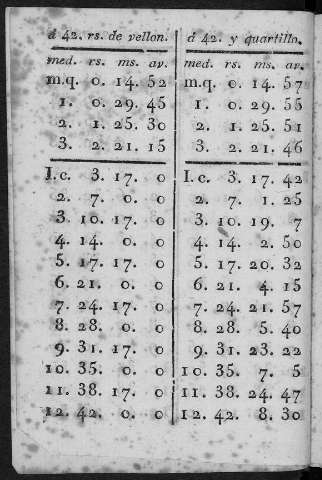 á 42. rs. de vellon.
med. rs. ms. av.
m.q. 0. 14. 52
1. 0. 29. 45
2. 1. 25. 30
3. 2. 21. 15
1. c. 3. 17. 0
2. 7. 0. 0
3. 10. 17. 0
4. 14. 0. 0
5. 17. 17. 0
6. 21. 0. 0
7. 24. 17. 0
8. 28. 0. 0
9. 31. 17. 0
10. 35. 0. 0
11. 38. 17. 0
12. 42. 0. 0
á 42. y quartillo.
med. rs. ms. av.
m.q. 0. 14. 57
1. 0. 29. 55
2. 1. 25. 51
3. 2. 21. 46
1. c. 3. 17. 42
2. 7. 1. 25
3. 10. 19. 7
4. 14. 2. 50
5. 17. 20. 32
6. 21. 4. 15
7. 24. 21. 57
8. 28. 5. 40
9. 31. 23. 22
10. 35. 7. 5
11. 38. 24. 47
12. 42. 8. 30